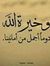 وخيرة الله
دوماً أجمل من أمانينا.